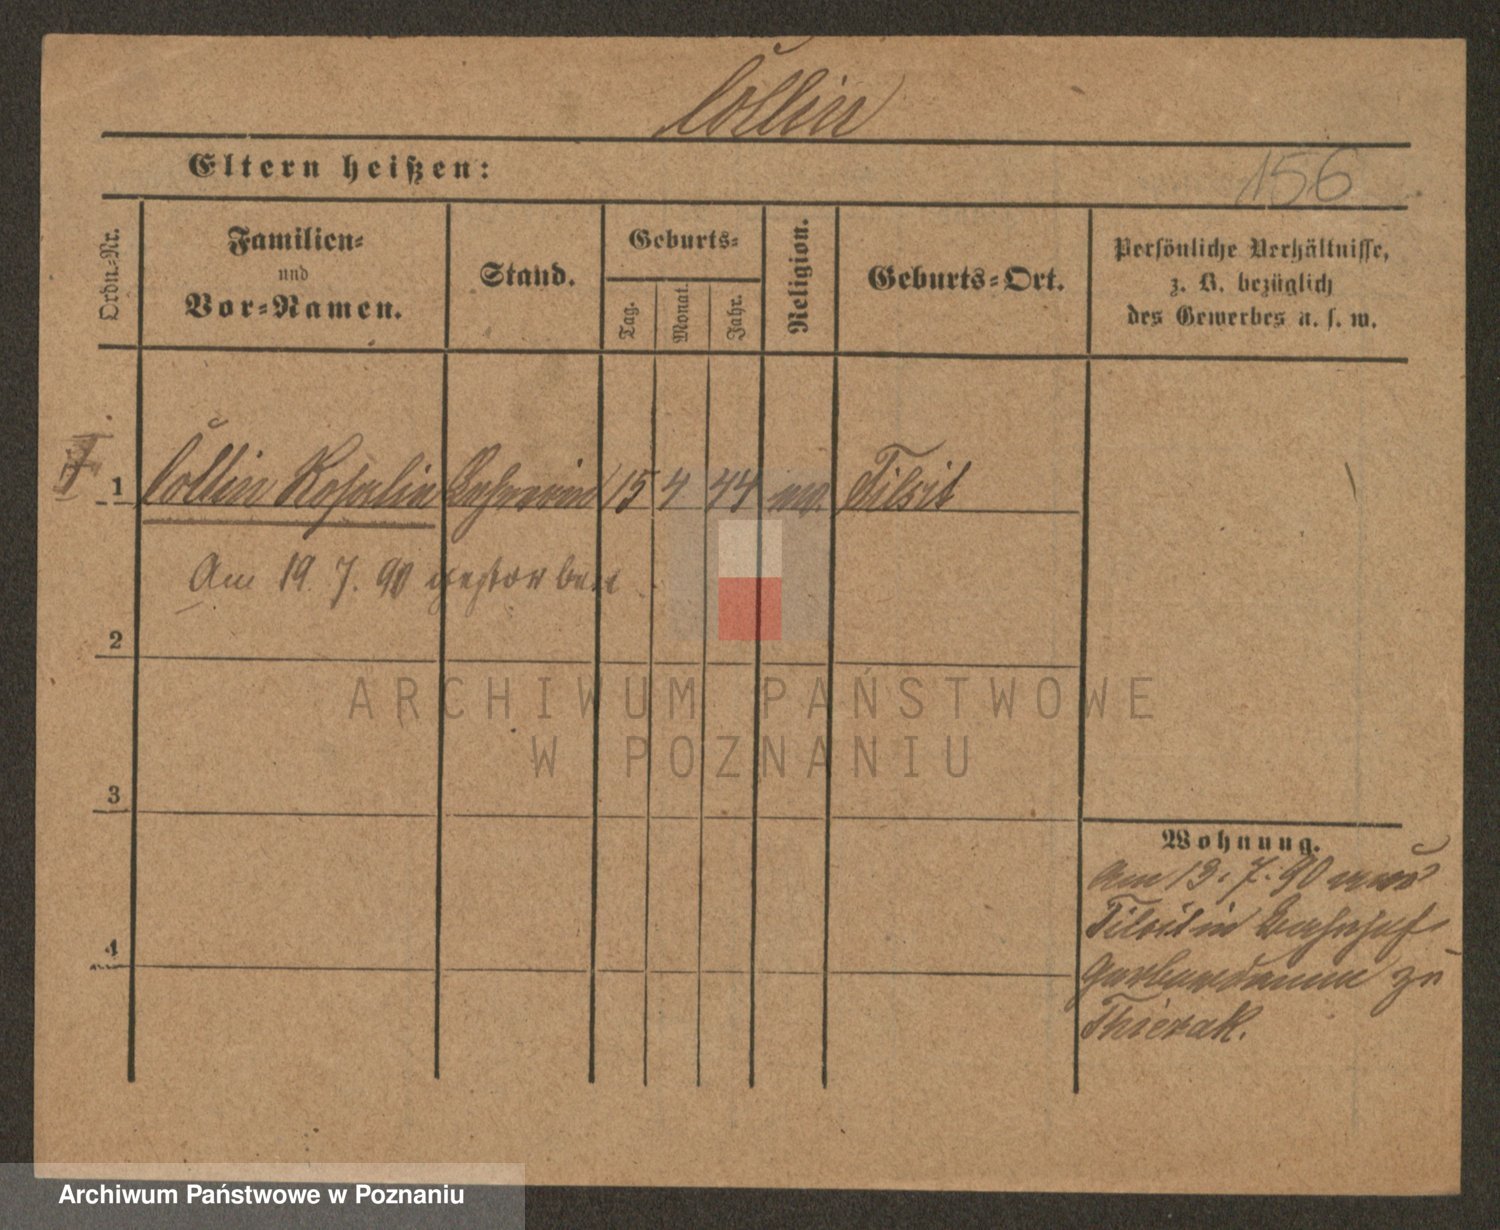 Collin
Eltern heißen:
156
Ordn.-Nr.
Familien-
und
Vor-Namen.
Stand.
Geburts-
Tag.
Monat.
Jahr.
Religion.
Geburts-Ort.
Persönliche Verhältnisse,
z. B. bezüglich
des Gewerbes u. s. w.
1 Collin Rosalie Lehrerin 15 4 44 Tilsit
Am 19. 7. 90 gestorben
2
3
4
Wohnung.
Am 13. 7. 90
Tilsit in Bahnhof
Gerberdamm zu
ARCHIWUM PAŃSTWOWE
W POZNANIU
Archiwum Państwowe w Poznaniu